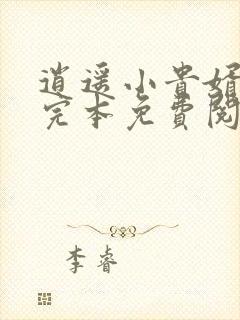 逍遥小贵婿
完本免費閱
李睿